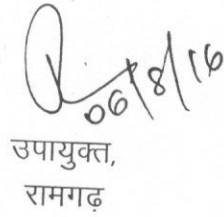 06/8/16
उपायुक्त,
रामगढ़